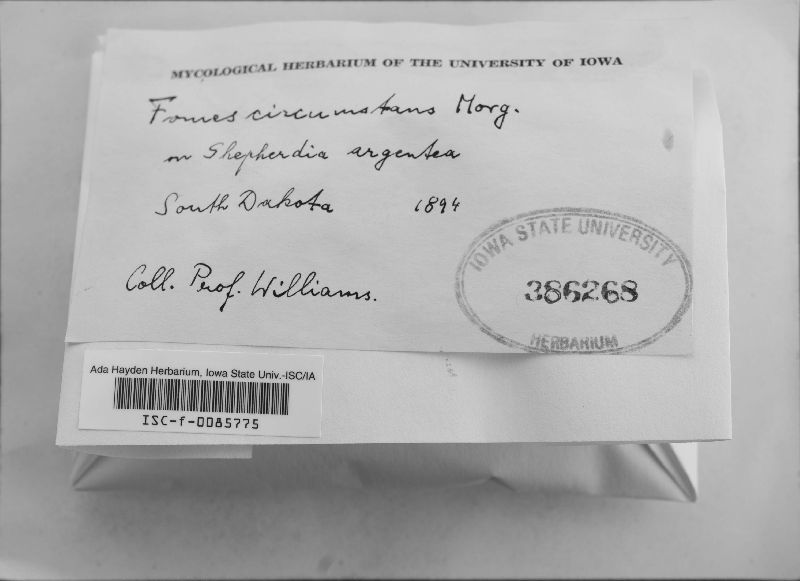 MYCOLOGICAL HERBARIUM OF THE UNIVERSITY OF IOWA
Fomes circumstans Morg.
on Shepherdia argentea
South Dakota 1894
Coll. Prof. Williams.
IOWA STATE UNIVERSITY
386268
HERBARIUM
Ada Hayden Herbarium, Iowa State Univ.-ISC/IA
ISC-f-0085775